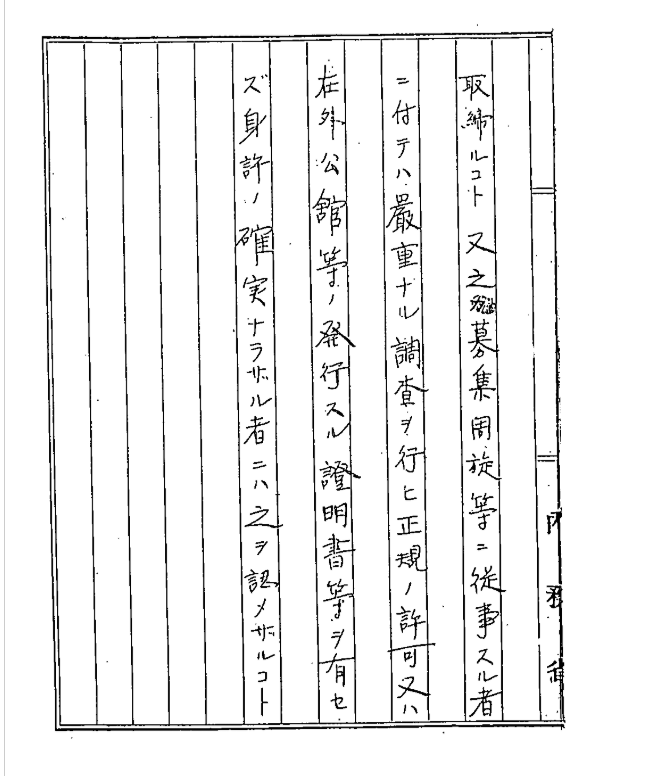 取締ルコト又之募集周旋等ニ従事スル者
ニ付テハ嚴重ナル調査ヲ行ヒ正規ノ許可又ハ
在外公館等ノ発行スル證明書等ヲ有セ
ズ身許ノ確実ナラザル者ニハ之ヲ認メザルコト
内務省